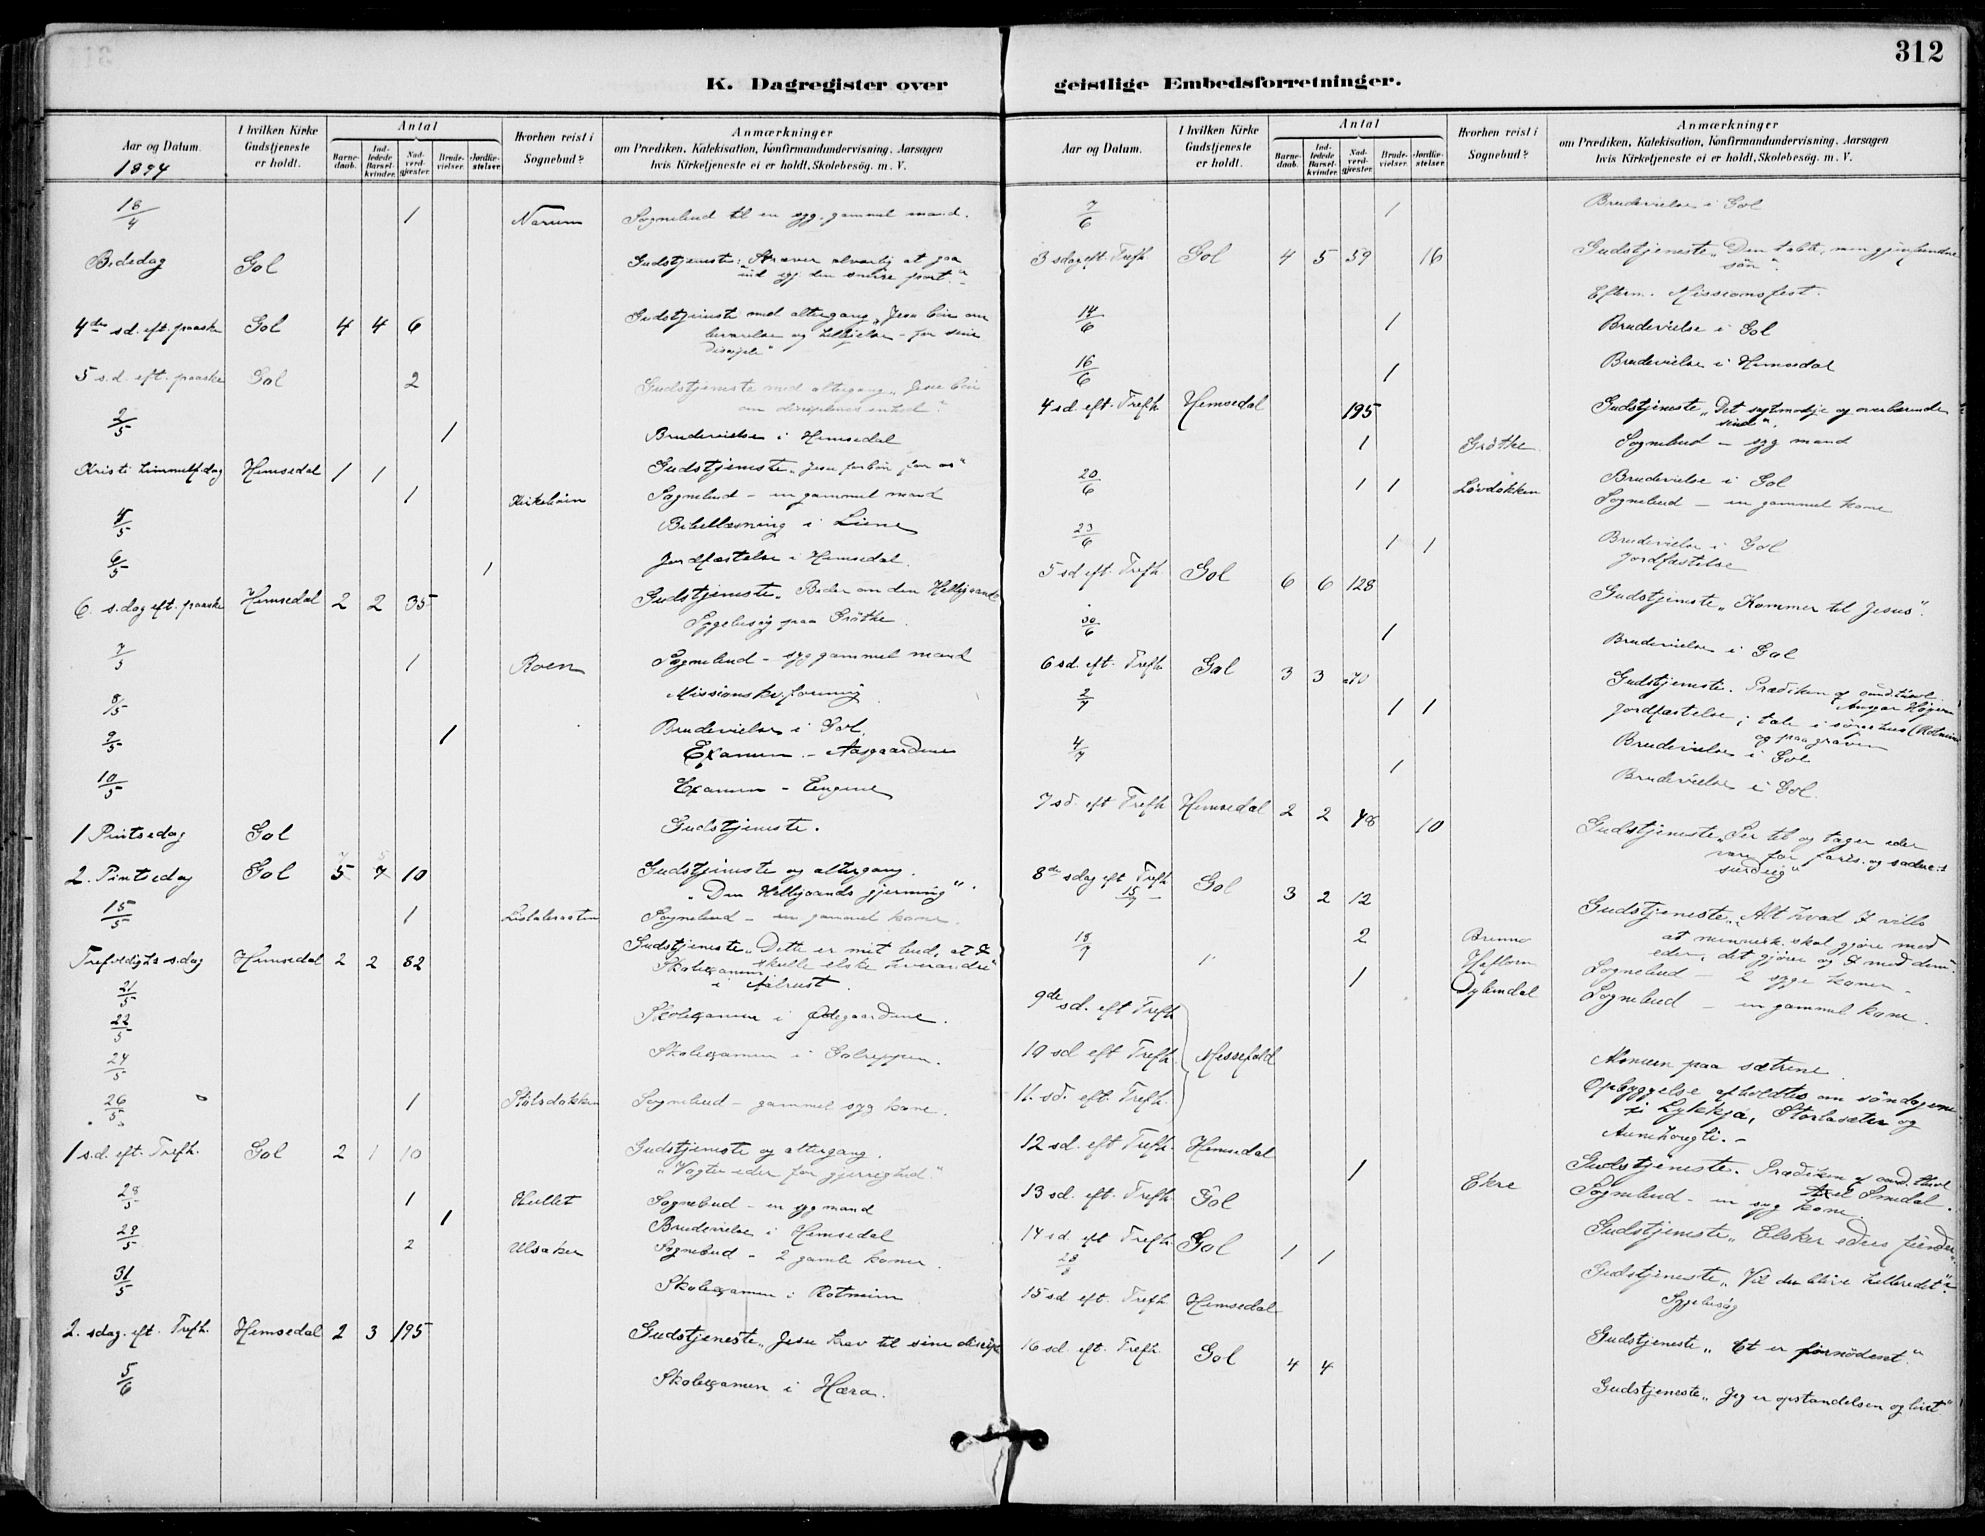 312
K. Dagregister over geistlige Embedsforretninger.
Aar og Datum.
1894
I hvilken Kirke Gudstjeneste er holdt.
Antal
Barne-daab.
Ind-ledede Barsel-kvinder.
Nad-verd-gjæster.
Brude-vielser.
Jordfæ-stelser.
Hvorhen reist i Sognebud?
Anmærkninger
om Prædiken, Katekisation, Konfirmandundervisning, Aarsagen
hvis Kirketjeneste ei er holdt, Skolebesøg. m. V.
18/4 1 Narum Sognebud til en syg. gammel mand.
Bededag Gol Gudstjeneste: Stræver alvorlig at gaa
ind gj. den snevre port."
4de sd. eft. paaske Gol 4 4 6 Gudstjeneste med altergang "Jesu bøn om
bevarelse og helligelse - for sine
disciple"
5 s.d. eft. paaske Gol 2 Gudstjeneste med altergang "Jesu bøn
om disciplenes enhed".
2/5 1 Brudevielse i Hemsedal
Kristi himmelf.dag Hemsedal 1 1 Gudstjeneste "Jesu forbøn for os"
1 Kirkebøen Sognebud - en gammel mand
4/5 Bibellæsning i Liene
6/5 1 Jordfæstelse i Hemsedal.
6. s.dag eft. paaske Hemsedal 2 2 35 Gudstjeneste "Beder om den Helligaand"
Sygebesøg paa Grøthe.
7/5 1 Roen Sognebud - syg gammel mand
8/5 Missionskv.forening
9/5 1 Brudevielse i Gol.
Examen - Aasgaardene
10/5 Examen - Engene
1 Pintsedag Gol Gudstjeneste.
2. Pintsedag Gol 5 7 10 Gudstjeneste og altergang.
"Den Helligaands gjerning".
15/5 1 Sognebud - en gammel kone.
Trefoldighs s.dag Hemsedal 2 2 82 Gudstjeneste "Dette er mit bud, at I
skulle elske hverandre"
21/5 Skolexamen i Aalrust.
22/5 Skolexamen i Ødegaardene.
24/5 Skolexamen i Golreppen.
26/5 1 Stølsdokken Sognebud - gammel syg kone.
1 s.d. eft. Trefh. Gol 2 1 10 Gudstjeneste og altergang.
"Vogter eder for gjerrighed."
28/5 1 Hullet Sognebud - en syg mand
29/5 1 Brudevielse i Hemsedal
2 Ulsaker Sognebud - 2 gamle koner.
31/5 Skolexamen i Rotneim
2. sdag. eft. Trefh. Hemsedal 2 3 195 Gudstjeneste "Jesu krav til sine discipl
5/6 Skolexamen i Hæra.
Aar og Datum.
I hvilken Kirke Gudstjeneste er holdt.
Antal
Barne-daab.
Ind-ledede Barsel-kvinder.
Nad-verd-gjæster.
Brude-vielser.
Jordfæ-stelser.
Hvorhen reist i Sognebud?
Anmærkninger
om Prædiken, Katekisation, Konfirmandundervisning, Aarsagen
hvis Kirketjeneste ei er holdt, Skolebesøg. m. V.
7/6 1 Brudevielse i Gol
3 sdag eft. Trefh Gol 4 5 59 16 Gudstjeneste "Den tabte, men gjenfundne
søn".
Efterm. Missionsfest.
14/6 1 Brudevielse i Gol
16/6 1 Brudevielse i Hemsedal
4 sd. eft. Trefh Hemsedal 195 Gudstjeneste "Det sagtmodige og overbærende
sind".
1 Grøthe Sognebud - syg mand
20/6 1 1 Løvdokken Brudevielse i Gol
Sognebud - en gammel kone
23/6 1 1 Brudevielse i Gol
Jordfæstelse
5 sd eft. Trefh. Gol 6 6 128 Gudstjeneste "Kommer til Jesus".
30/6 1 Brudevielse i Gol
6 sd. eft. Trefh Gol 3 3 Gudstjeneste. Prædiken af cand. theol.
Ansgar
2/7 1 1 Jordfæstelse; tale i sørgehus (Rotneim
og paa graven
Brudevielse i Gol
4/7 1 Brudevielse i Gol.
7 sd. eft Trefh Hemsedal 2 2 48 10 Gudstjeneste "Ser til og tager eder
vare for faris. og sadue.s
surdeig"
8de sdag eft Trefh 15/7 Gol 3 2 12 Gudstjeneste "Alt hvad I ville
at mennesk. skal gjøre mod
eder, det gjører og I mod dem"
18/7 2 Brenno Sognebud - 2 syge koner.
1 Gylendal Sognebud - en gammel kone.
9de sd. eft Trefh
10 sd eft Trefh. Messefald Alonsen paa sætrene
11. sd. eft. Trefh. Opbyggelse afholdtes om søndagene
i Lykkja, Storlasæter og
Aunehougli.-
12 sd. eft Trefh. Hemsedal Gudstjeneste. Prædiken af cand. theol
Axel Smedal.
1 Ekre Sognebud - en syg kone.
13 sd. eft. Trefh. Gol Gudstjeneste "Elsker eders fiender"
14 sd eft Trefh. Gol 1 1 Gudstjeneste "Vil du blive helbredet"?
28/8 Sygebesøg
15 sd eft. Trefh. Hemsedal Gudstjeneste "Et er fornødent."
16 sd. eft. Trefh. Gol 4 4 Gudstjeneste "Jeg er opstandelsen og livet"